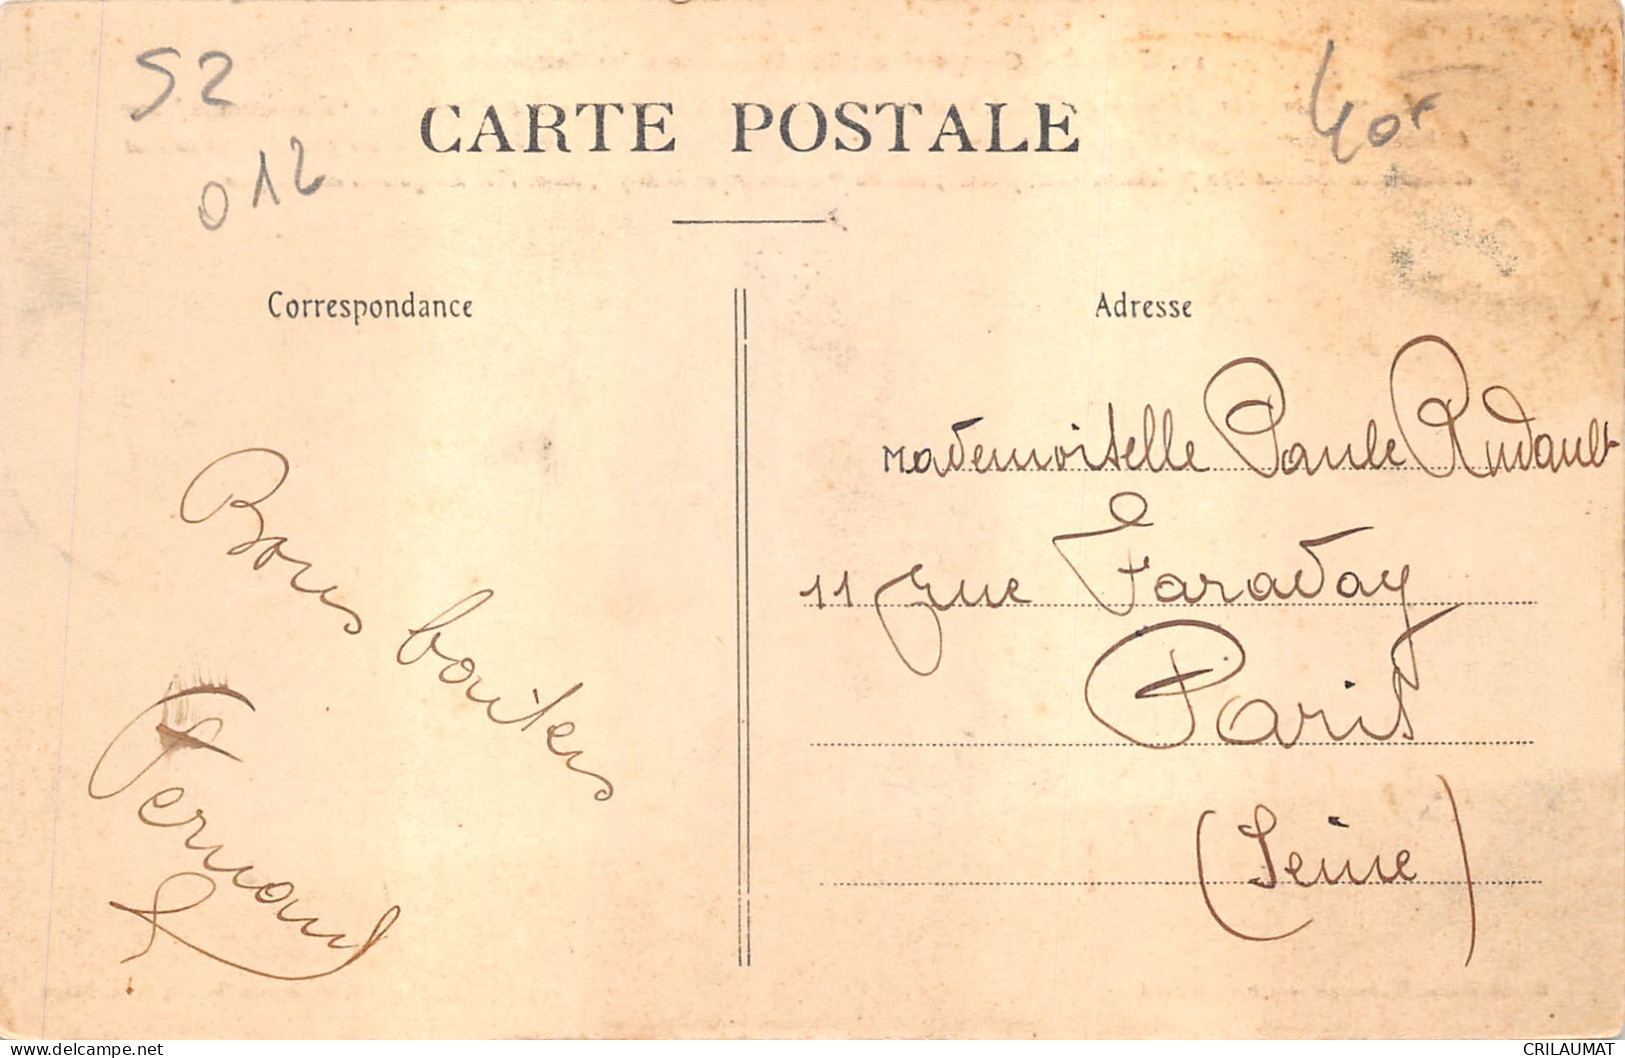 52
012
40F
CARTE POSTALE
Correspondance
Adresse
Bons baisers
Fernand
Mademoiselle Paule Rudault
11 rue Faraday
Paris
(Seine)
CRILAUMAT